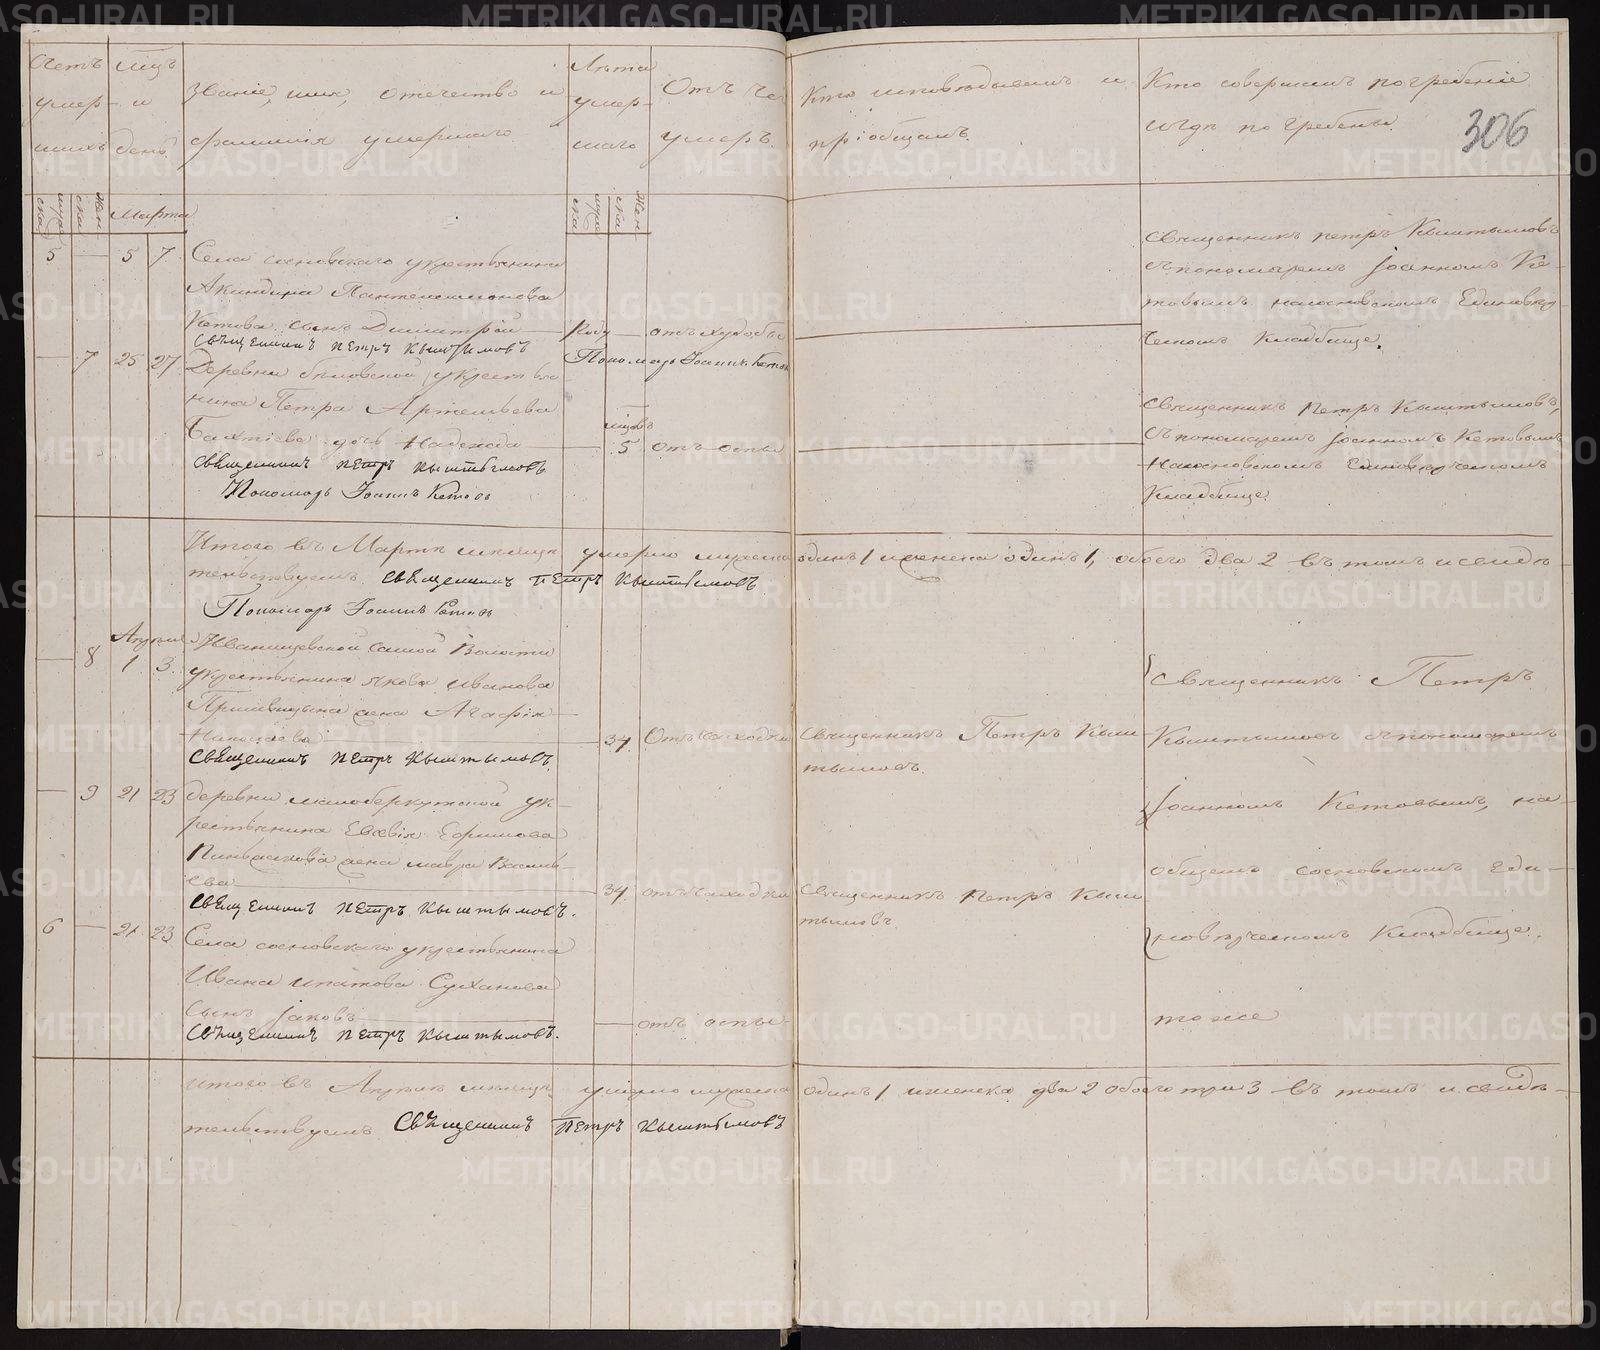 Счетъ умер-шихъ
Мцъ и день
Званіе, имя, отечество и
фамилія умершаго
Лѣта умер-шаго
Отъ чего
умеръ.
Кто исповѣдывалъ и
пріобщалъ.
Кто совершалъ погребеніе
и гдѣ погребены.
306
мужеска
женска
Марта
мужеска
женска
5 — 5 7
Села сосновскаго крестьянина
Акиндина Пантелеимонова
Кетова сынъ Димитрій — году — отъ худобы
Священникъ петръ кыштымовъ
Пономарь Іоаннъ Кетовъ
Священникъ петръ Кыштымовъ
съ пономаремъ Іоанномъ Ке-
товымъ на сосновскомъ Единовѣр-
ческомъ Кладбище.
— 7 25 27
Деревни бѣловской крестья-
нина Петра Артемьева
Бахтіева дочь Надежда — мцовъ 5 отъ оспы
Священникъ петръ кыштымовъ
Пономарь Іоаннъ Кетовъ
Священникъ Петръ Кыштымовъ,
съ пономаремъ Іоанномъ Кетовымъ
На сосновскомъ Единовѣрческомъ
Кладбище.
Итого въ Мартѣ мѣсяцѣ умерло мужеска одинъ 1 и женска одинъ 1, обоего два 2 въ томъ и свидѣ-
тельствуемъ Священникъ петръ кыштымовъ
Пономарь Іоаннъ Кетовъ
Апрѣля
— 8 1 3
Иванищевской самой Волости
крестьянина Якова Иванова
жена Агафія
34 Отъ чахотки
Священникъ Петръ Кыш
тымовъ.
Священникъ петръ кыштымовъ.
Священникъ Петръ
Кыштымовъ съ пономаремъ
Іоанномъ Кетовымъ, на
общемъ сосновскомъ Еди-
новѣрческомъ Кладбище.
— 9 21 23
деревни малоберкутской кр-
рестьянина Ефимова
жена мавра Василь-
ева — 34 отъ чахотки
Священникъ Петръ Кыш
тымовъ
Священникъ петръ кыштымовъ.
6 — 21 23
Села сосновскаго крестьянина
Ивана ипатова Суханова
сынъ Іаковъ — отъ оспы
тоже
Священникъ петръ кыштымовъ.
итого въ Апрѣлѣ мѣсяцѣ умерло мужеска одинъ 1 и женска два 2 обоего три 3 въ томъ и свидѣ-
тельствуемъ Священникъ петръ кыштымовъ
METRIKI.GASO-URAL.RU